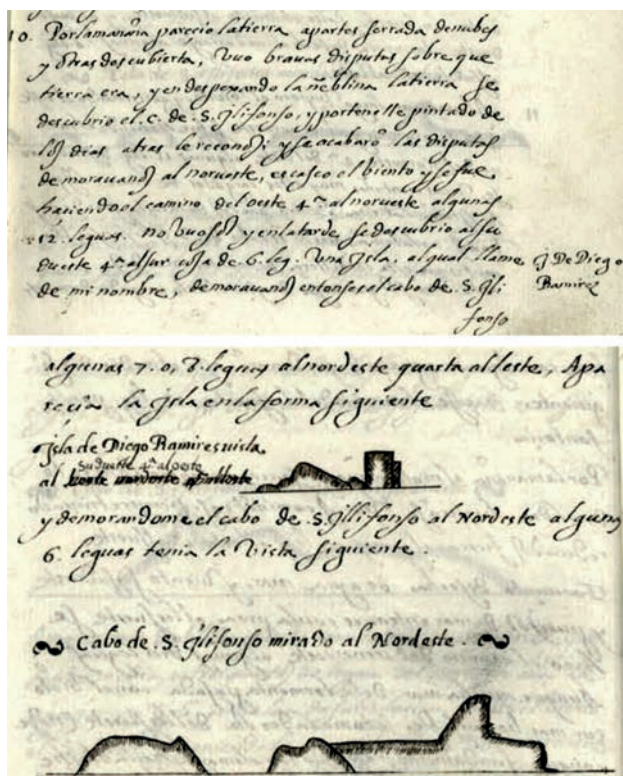 10. Por la mañana pareçio la tierra a partes serrada de nubes
y otras descubierta, vuo brauas disputas sobre que
tierra era, y en despexando la ñeblina la tierra se
descubrio el C. de S. Ylifonso, y por tenelle pintado de
los dias atras le reconosi; y se acabarō las disputas
demorauanos al norueste, escaseo el biento y se fue
haciendo el camino del oeste 4ª al norueste algunas
12. leguas. no vuo sol y en la tarde se descubrio al su
dueste 4ª al sur cosa de 6. leg. vna ysla, a lqual llame
J. De Diego
Ramirez
de mi nombre, demorauanos entonses el cabo de S. Yli
fonso
algunas 7. o, 8. leguas al nordeste quarta al leste, Apa
recia la ysla en la forma siguiente
Ysla de Diego Ramires vista
sudueste 4ª al oeste
al
y demorandome el cabo de S. Yllifonso al Nordeste algunas
6. leguas tenia la vista siguiente.
Cabo de S. Ylifonso mirado al Nordeste.